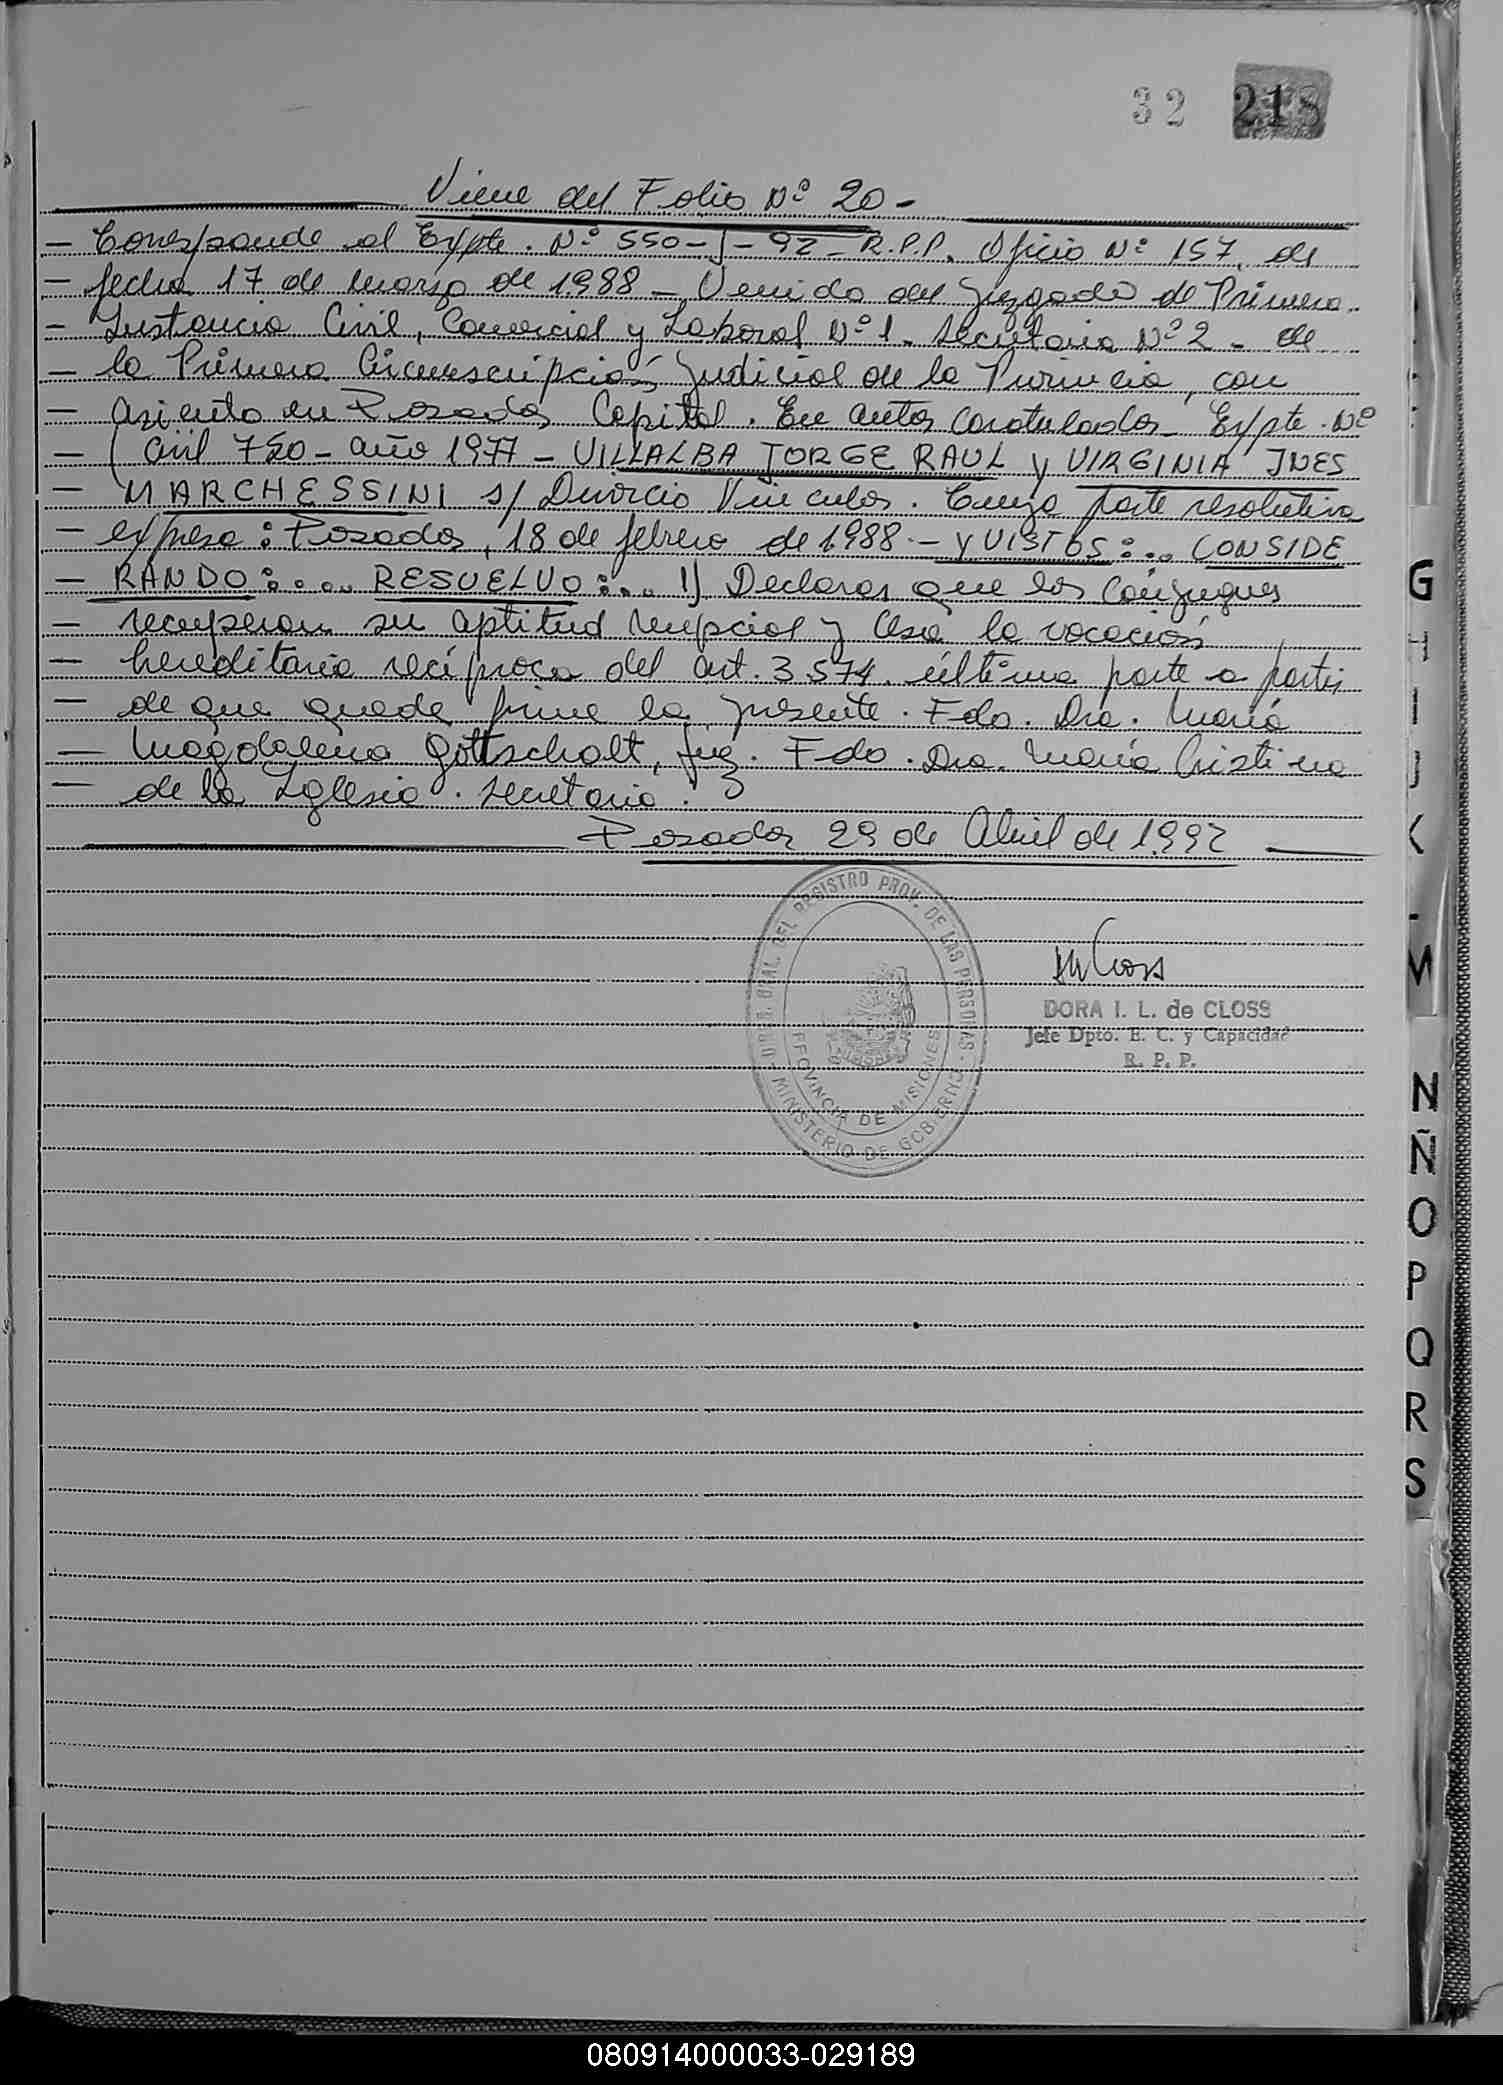 32 218
Viene del Folio Nº 20-
- Corresponde al Expte. Nº 550-J-92- R.P.P. Oficio Nº 157, de
- fecha 17 de marzo de 1988 - Venido del Juzgado de Primera
- Instancia Civil, Comercial y Laboral Nº 1. Secretaria Nº 2 - de
- la Primera Circunscripción Judicial de la Provincia, con
- asiento en Posadas Capital. En autos caratulados- Expte. Nº
- Civil 720- año 1977 - VILLALBA JORGE RAUL y VIRGINIA INES
- MARCHESSINI s/ Divorcio Vincular. Cuya parte resolutiva
- expresa: Posadas, 18 de febrero de 1988.- Y VISTOS:... CONSIDE
- RANDO:.... RESUELVO:... 1) Declarar que los Cónyuges
- recuperan su aptitud nupcial y cesa la vocación
- hereditaria recíproca del art. 3.574. última parte a partir
- de que quede firme la presente. Fdo. Dra. María
- Magdalena Gottschalt, Juez. Fdo. Dra. María Cristina
- de la Iglesia. Secretaria.
Posadas 29 de Abril de 1992
DIREC. GRAL. DEL REGISTRO PROV. DE LAS PERSONAS
PROVINCIA DE MISIONES
MINISTERIO DE GOBIERNO
DORA I. L. de CLOSS
Jefe Dpto. E. C. y Capacidad
R. P. P.
G
H
I
J
K
M
N
Ñ
O
P
Q
R
S
080914000033-029189